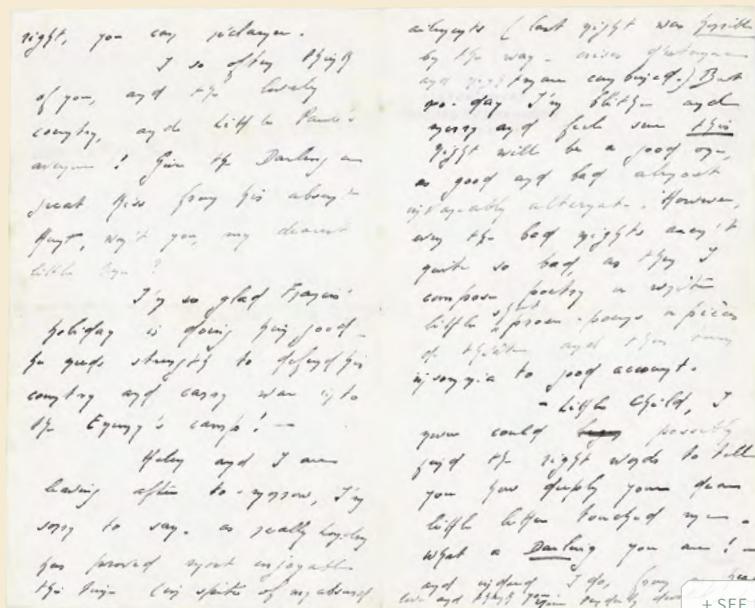 right, you can
I so often think
of you, and the lovely
country, and Little
Give the Darling a
great kiss from his absent
Aunt, won't you, my dearest
little
I'm so glad Francis'
holiday is doing him good -
he needs strength to defend his
country and carry war into
the Enemy's camp! -
Helen and I are
leaving after to-morrow, I'm
sorry to say. as really
has proved most enjoyable
(in spite of my absurd
ailments (last night was horrible
by the way -
and can bind.) But
to-day I'm blithe and
merry and feel sure this
night will be a good one,
as good and bad almost
invariably alternate. However,
even the bad nights aren't
quite so bad, as then I
compose poetry or write
little short prose-poems or pieces
and thus turn
insomnia to good account.
- Little Child, I
never could possibly
find the right words to tell
you how deeply your dear
little letter touched me -
what a Darling you are! -
and indeed I do, from
love and thank you
+ SEE